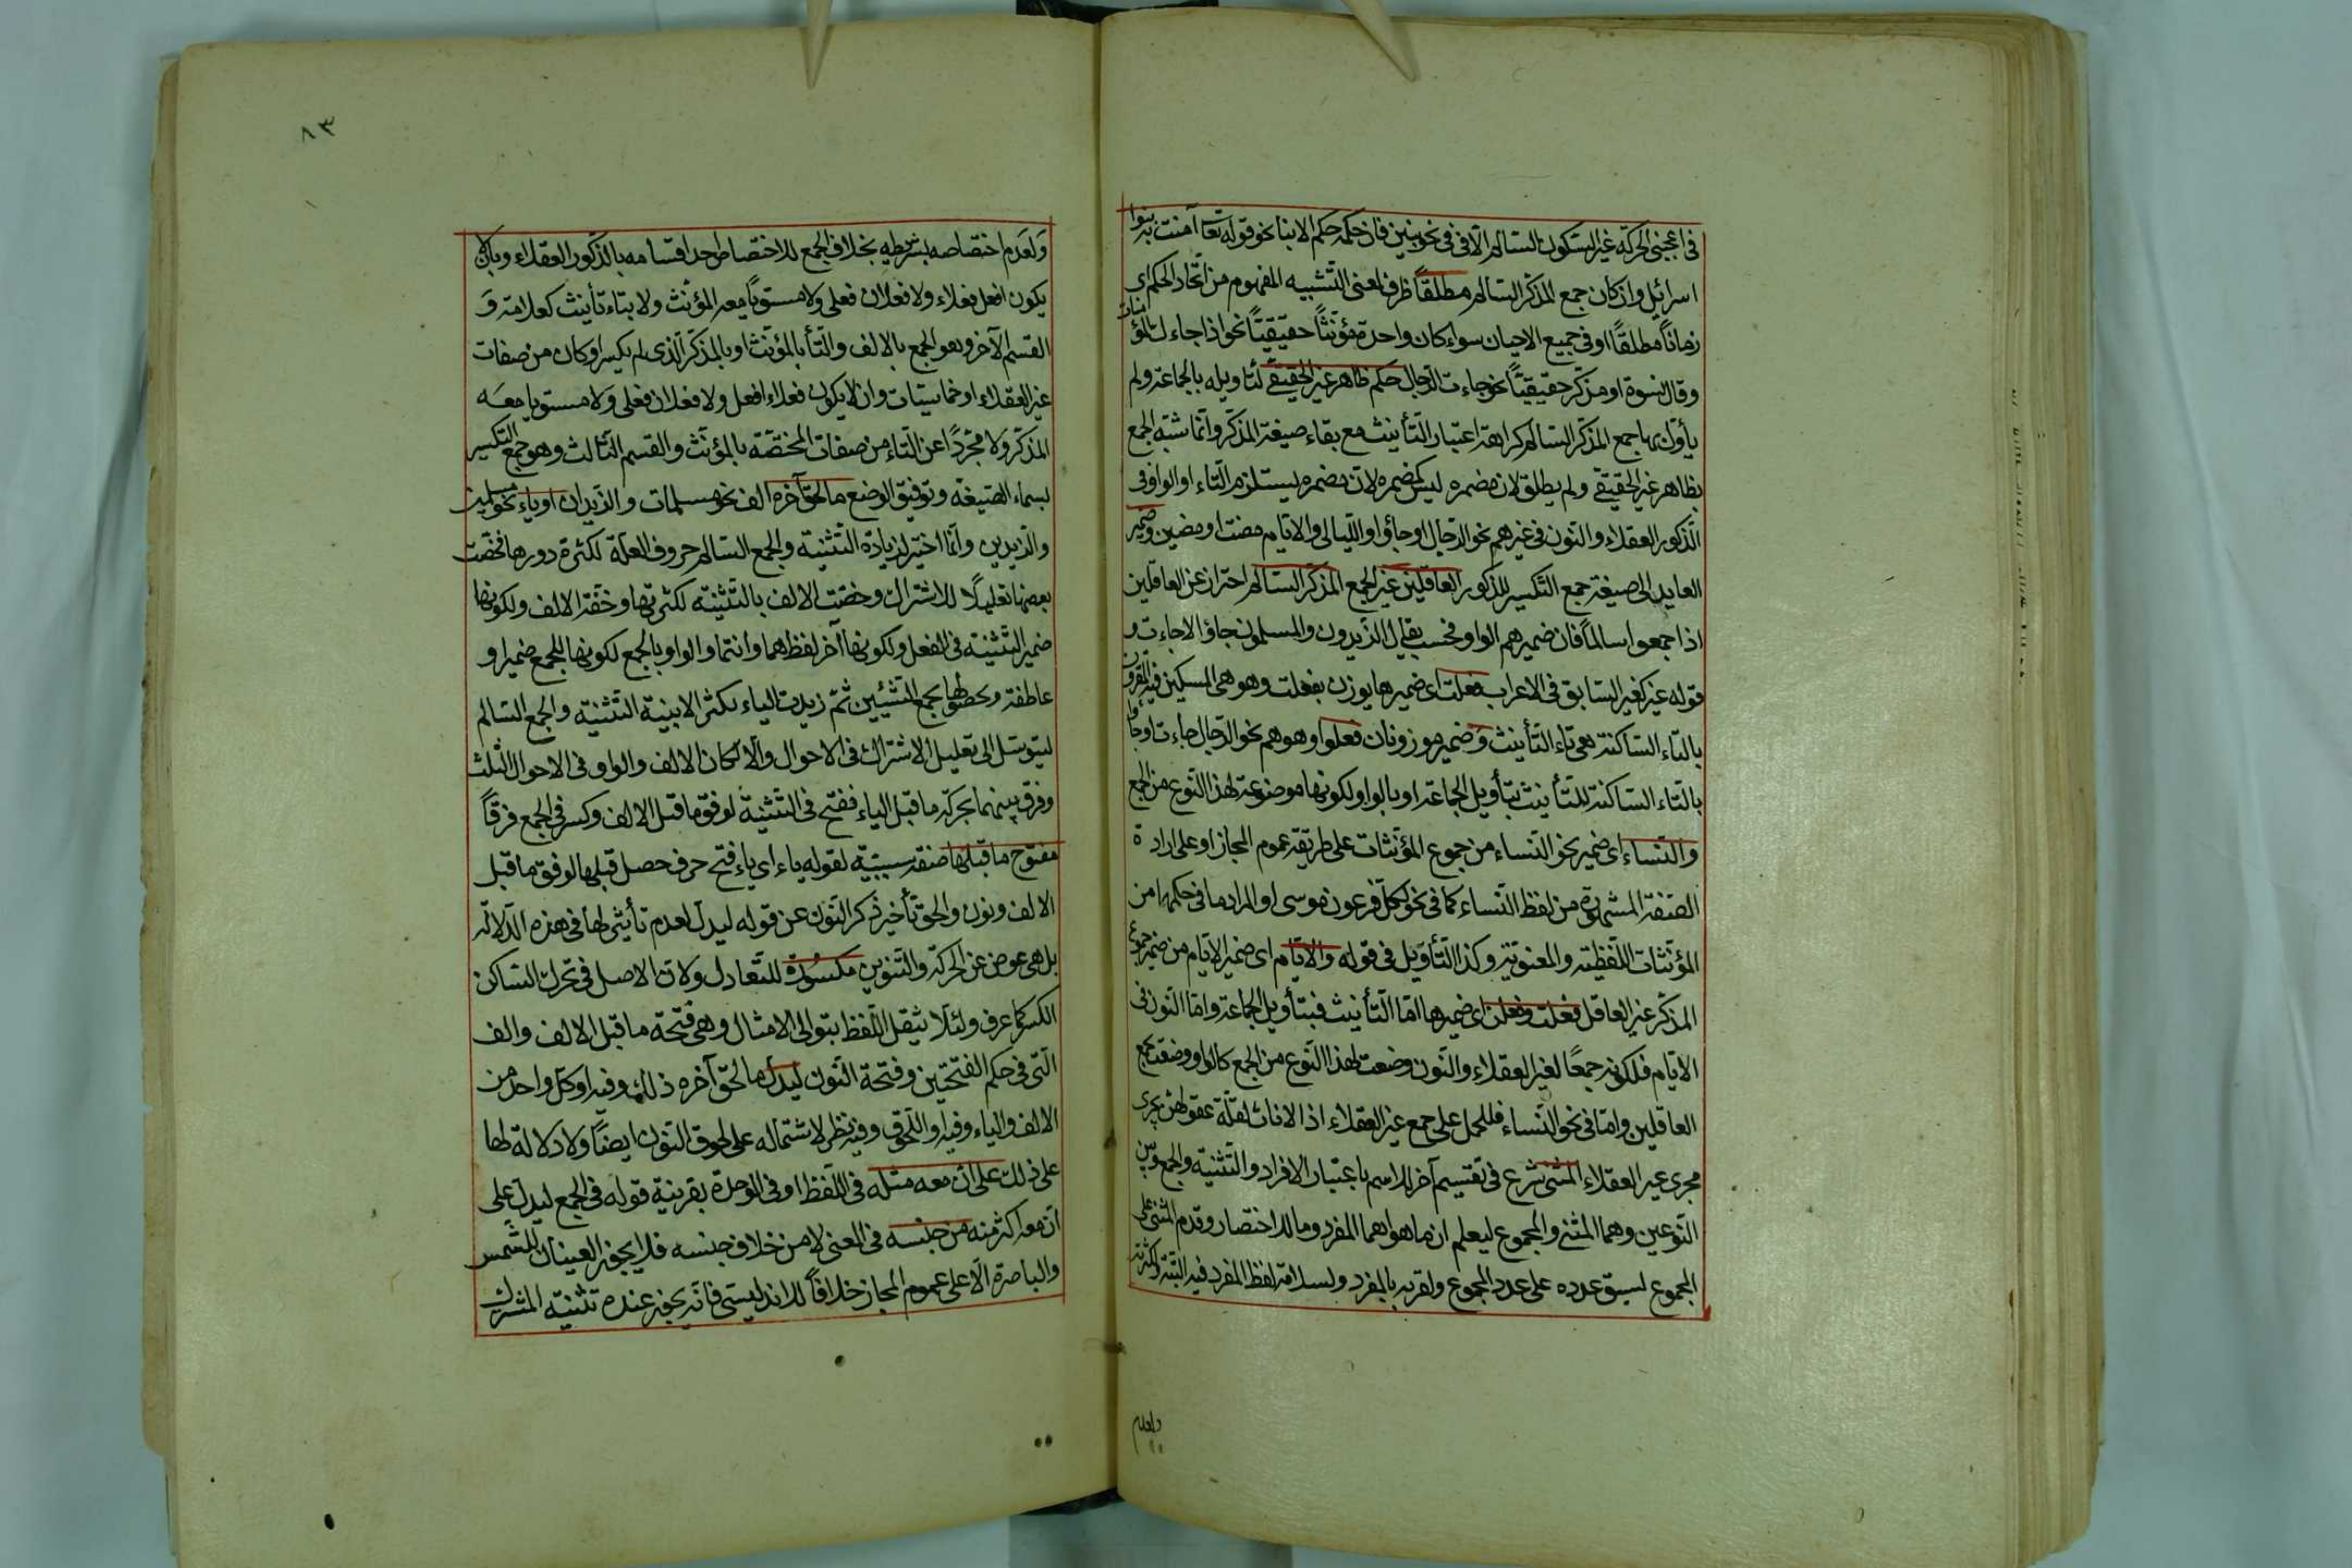 في اعجبنى الحركة غير السكون السالم الا في نحو بنين فان حكمه حكم الابنا نحو قوله تعا آمنت به بنوا
اسرائيل وان كان جمع المذكر السالم مطلقاً ظرف لمعنى التشبيه المفهوم من اتحاد الحكم اى
زماناً مطلقاً او في جميع الاحيان سواء كان واحدة مؤنثاً حقيقيّاً نحو اذا جاءك المؤمنات
وقال نسوة او مذكر حقيقيّاً نحو جاءت الرجال حكم ظاهر غير الحقيقي لتاويله بالجماعة ولم
يأوّل بها جمع المذكر السالم كراهة اعتبار التأنيث مع بقاء صيغة المذكر وانّما شبّه الجمع
بظاهر غير الحقيقي ولم يطلق لان مضمره ليس كمضمره لان مضمره يستلزم التاء او الواو في
الذكور العقلاء والنون في غيرهم نحو الرجال او جاؤا والليالى والايام مضت او مضين وضمير
العايد الى صيغة جمع التكسير للذكور العاقلين غير الجمع المذكر السالم احتراز عن العاقلين
اذا جمعوا سالماً فان ضميرهم الواو فحسب يقال الزيدون والمسلمون جاؤا لا جاءت و
قوله غير كغير السابق في الاعراب فعلت اى ضميرها يوزن بفعلت وهو هى المسكين فيه المقرون
بالتاء الساكنة هى تاء التأنيث وضمير موزونان فعلوا وهو هم نحو الرجال جاءت او جاؤا
بالتاء الساكنة للتأنيث بتأويل الجماعة او بالواو لكونها موضوعة لهذا النوع من الجمع
والنساء اى ضمير نحو النساء من جموع المؤنثات على طريقة عموم المجاز او على ارادة
الصفة المشهورة من لفظ النساء كما في نحو لكل فرعون موسى او المراد ما في حكمها من
المؤنثات اللفظية والمعنوية وكذا التأويل في قوله والايام اى ضمير الايام من ضمير جموع
المذكر غير العاقل فعلت وفعلن اى ضميرها اما التأنيث فبتأويل الجماعة واما النون في
الايام فلكونه جمعًا لغير العقلاء والنون وضعت لهذا النوع من الجمع كالواو وضعت لجمع
العاقلين واما في نحو النساء فللحمل على جمع غير العقلاء اذ الاناث لقلة عقولهن يجرى
مجرى غير العقلاء المثنى شرع في تقسيم آخر للاسم باعتبار الافراد والتثنية والجمع وبين
النوعين وهما المثنى والمجموع ليعلم ان ما هواهما المفرد وما للاختصار وقدم المثنى على
المجموع لسبق عدده على عدد المجموع ولقربه بالمفرد ولسلامة لفظ المفرد فيه البتة ولكثرته
ولعدم
٨٣
ولعدم اختصاصه بشرطيه بخلاف الجمع للاختصاص احد اقسامه بالذكور العقلاء وبان لا
يكون افعل فعلاء ولا فعلان فعلى ولا مستوياً معه المؤنث ولا بتاء تأنيث كعلامة و
القسم الآخر وهو الجمع بالالف والتا بالمؤنث او بالمذكر الذى لم يكسر او كان من صفات
غير العقلاء او خماسيات وان لا يكون فعلاء افعل ولا فعلان فعلى ولا مستويا معه
المذكر ولا مجرداً عن التاء من صفات المختصّة بالمؤنث والقسم الثالث وهو جمع التكسير
بسماء الصيغة وتوفيق الوضع ما لحق آخره الف نحو مسلمات والزيدان او ياء نحو مسلمين
والزيدين وانّما اختير لزيادة التثنية والجمع السالم حروف العلّة لكثرة دورها فخصّت
بعضها تقليلًا للاشتراك وخصّت الالف بالتثنية لكثرتها وخفّة الالف ولكونها
ضمير التثنية في الفعل ولكونها آخر لفظ هما وانتما والواو بالجمع لكونها للجمع ضميرا و
عاطفة ومحطها بجمع الشيئين ثمّ زيدت الياء لكثر الابنية التثنية والجمع السالم
ليتوسّل الى تقليل الاشتراك في الاحوال والا لكان الالف والواو في الاحوال الثلث
وفرق بينهما بحركة ما قبل الياء ففتح في التثنية لوفق ما قبل الالف وكسر في الجمع فرقاً
مفتوح ما قبلها صفة سببيّة لقوله ياء اى ياء فتح حرف حصل قبلها لوفق ما قبل
الالف ونون والحق تأخير ذكر النون عن قوله ليدل لعدم تأثير لها في هذه الدلالة
بل هى عوض عن الحركة والتنوين مكسورة للتعادل ولان الاصل في تحرك الساكن
الكسر كما عرف ولئلا يثقل اللفظ بتوالى الامثال وهى فتحة ما قبل الالف والف
التى في حكم الفتحتين وفتحة النون ليدل ما لحق آخره ذلك وفيه او كل واحد من
الالف والياء وفيه او اللحوق وفيه نظر لاشتماله على لحوق النون ايضاً ولا دلالة لها
على ذلك على ان معه مثله في اللفظ او في الوحدة بقرينة قوله في الجمع ليدل على
ان معه اكثر منه من جنسه في المعنى لا من خلاف جنسه فلا يجوز العينان للشمس
والباصرة الا على عموم المجاز خلافاً للاندليسى فانه يجوز عنده تثنية المشترك